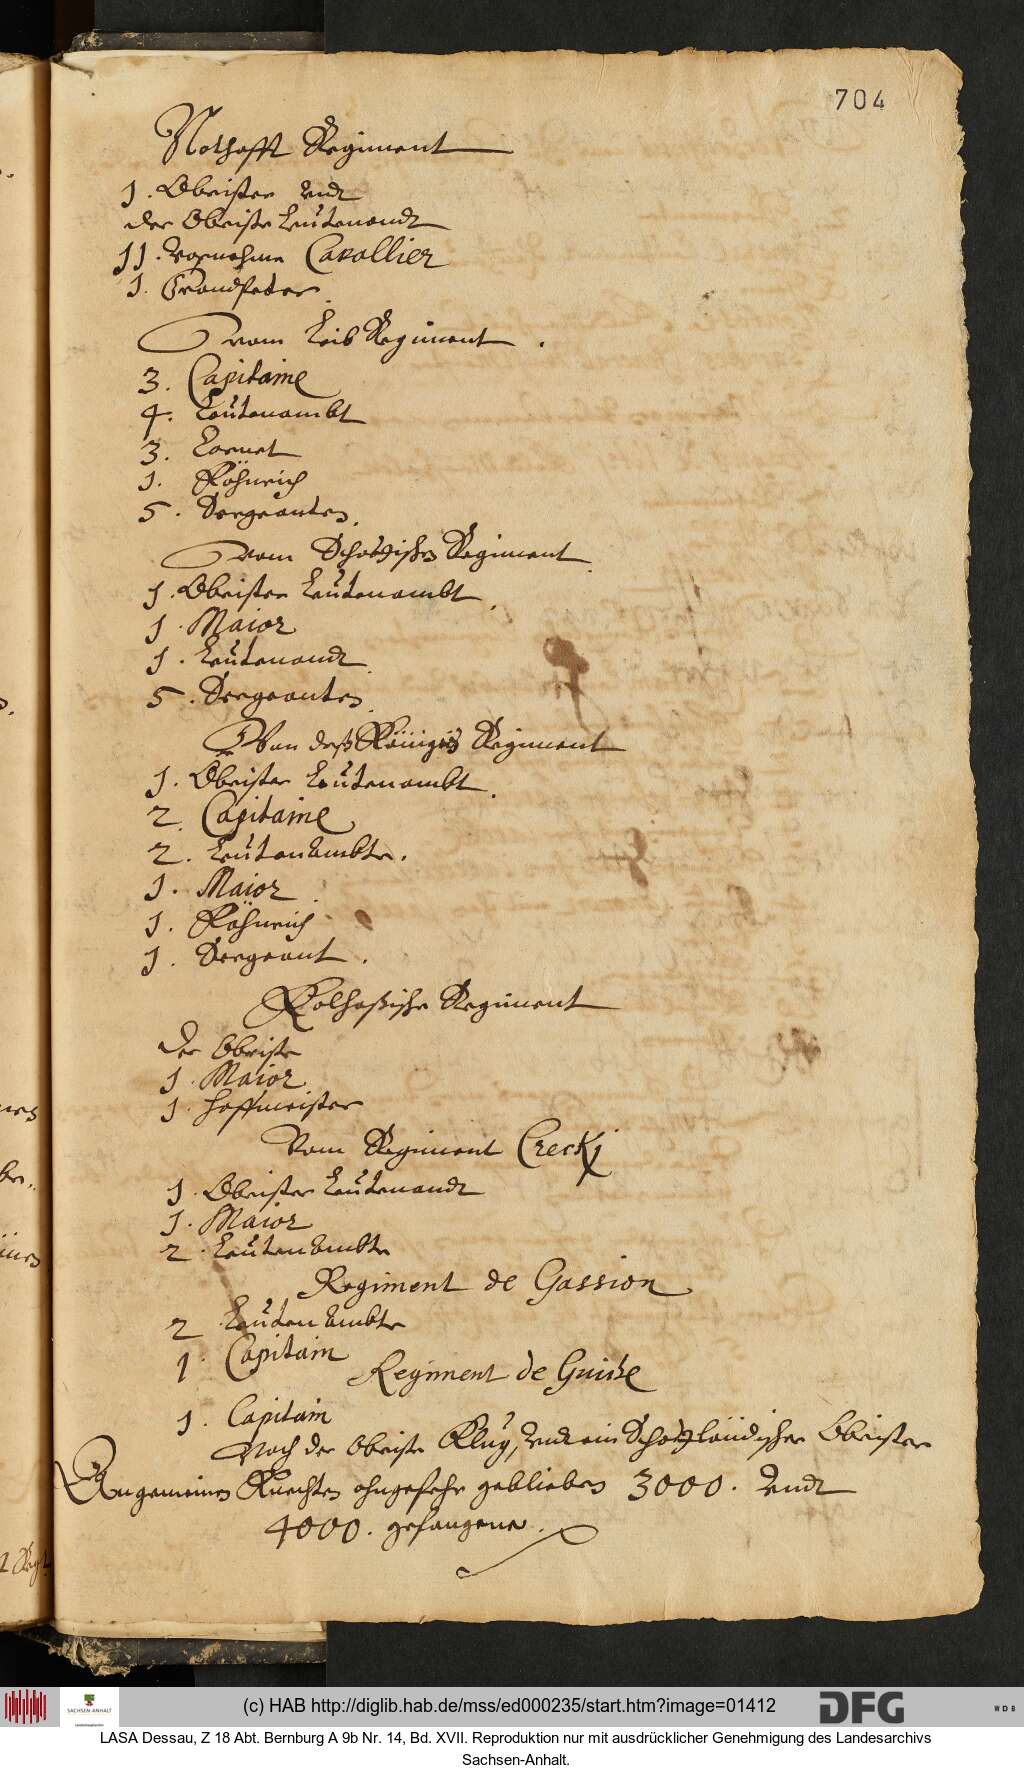 704
Nothafft Regiment
1. Obrister undt
der Obriste Leütenandt
11. Vornehme Cavallier
1. 
vom Leib Regiment.
3. Capitaine
4. Leütenambt
3. Cornet
1. Föhnrich
5. Sergeanten.
vom Schottischen Regiment.
1. Obrister Leütenambt.
1. Maior
1. Leütenandt.
5. Sergeanten.
Von deß Königs Regiment
1. Obrister Leütenambt.
2. Capitaine
2. LeütenAmbte.
1. Maior.
1. Föhnrich
1. Sergeant.
Kolhaßische Regiment
der Obriste
1. Maior
1. Hoffmeister
Vom Regiment Crecki
1. Obrister Leütenandt
1. Maior
2. LeütenAmbte
Regiment de Gassion
2 LeütenAmbte
1. Capitain
Regiment de Guiche
1. Capitain
Noch der Obriste Klug, undt ein Schottländischer Obrister
An gemeinen Knechten ohngefehr geblieben 3000. Undt
4000. gefangene.
(c) HAB http://diglib.hab.de/mss/ed000235/start.htm?image=01412
SACHSEN-ANHALT
DFG
WDB
LASA Dessau, Z 18 Abt. Bernburg A 9b Nr. 14, Bd. XVII. Reproduktion nur mit ausdrücklicher Genehmigung des Landesarchivs
Sachsen-Anhalt.